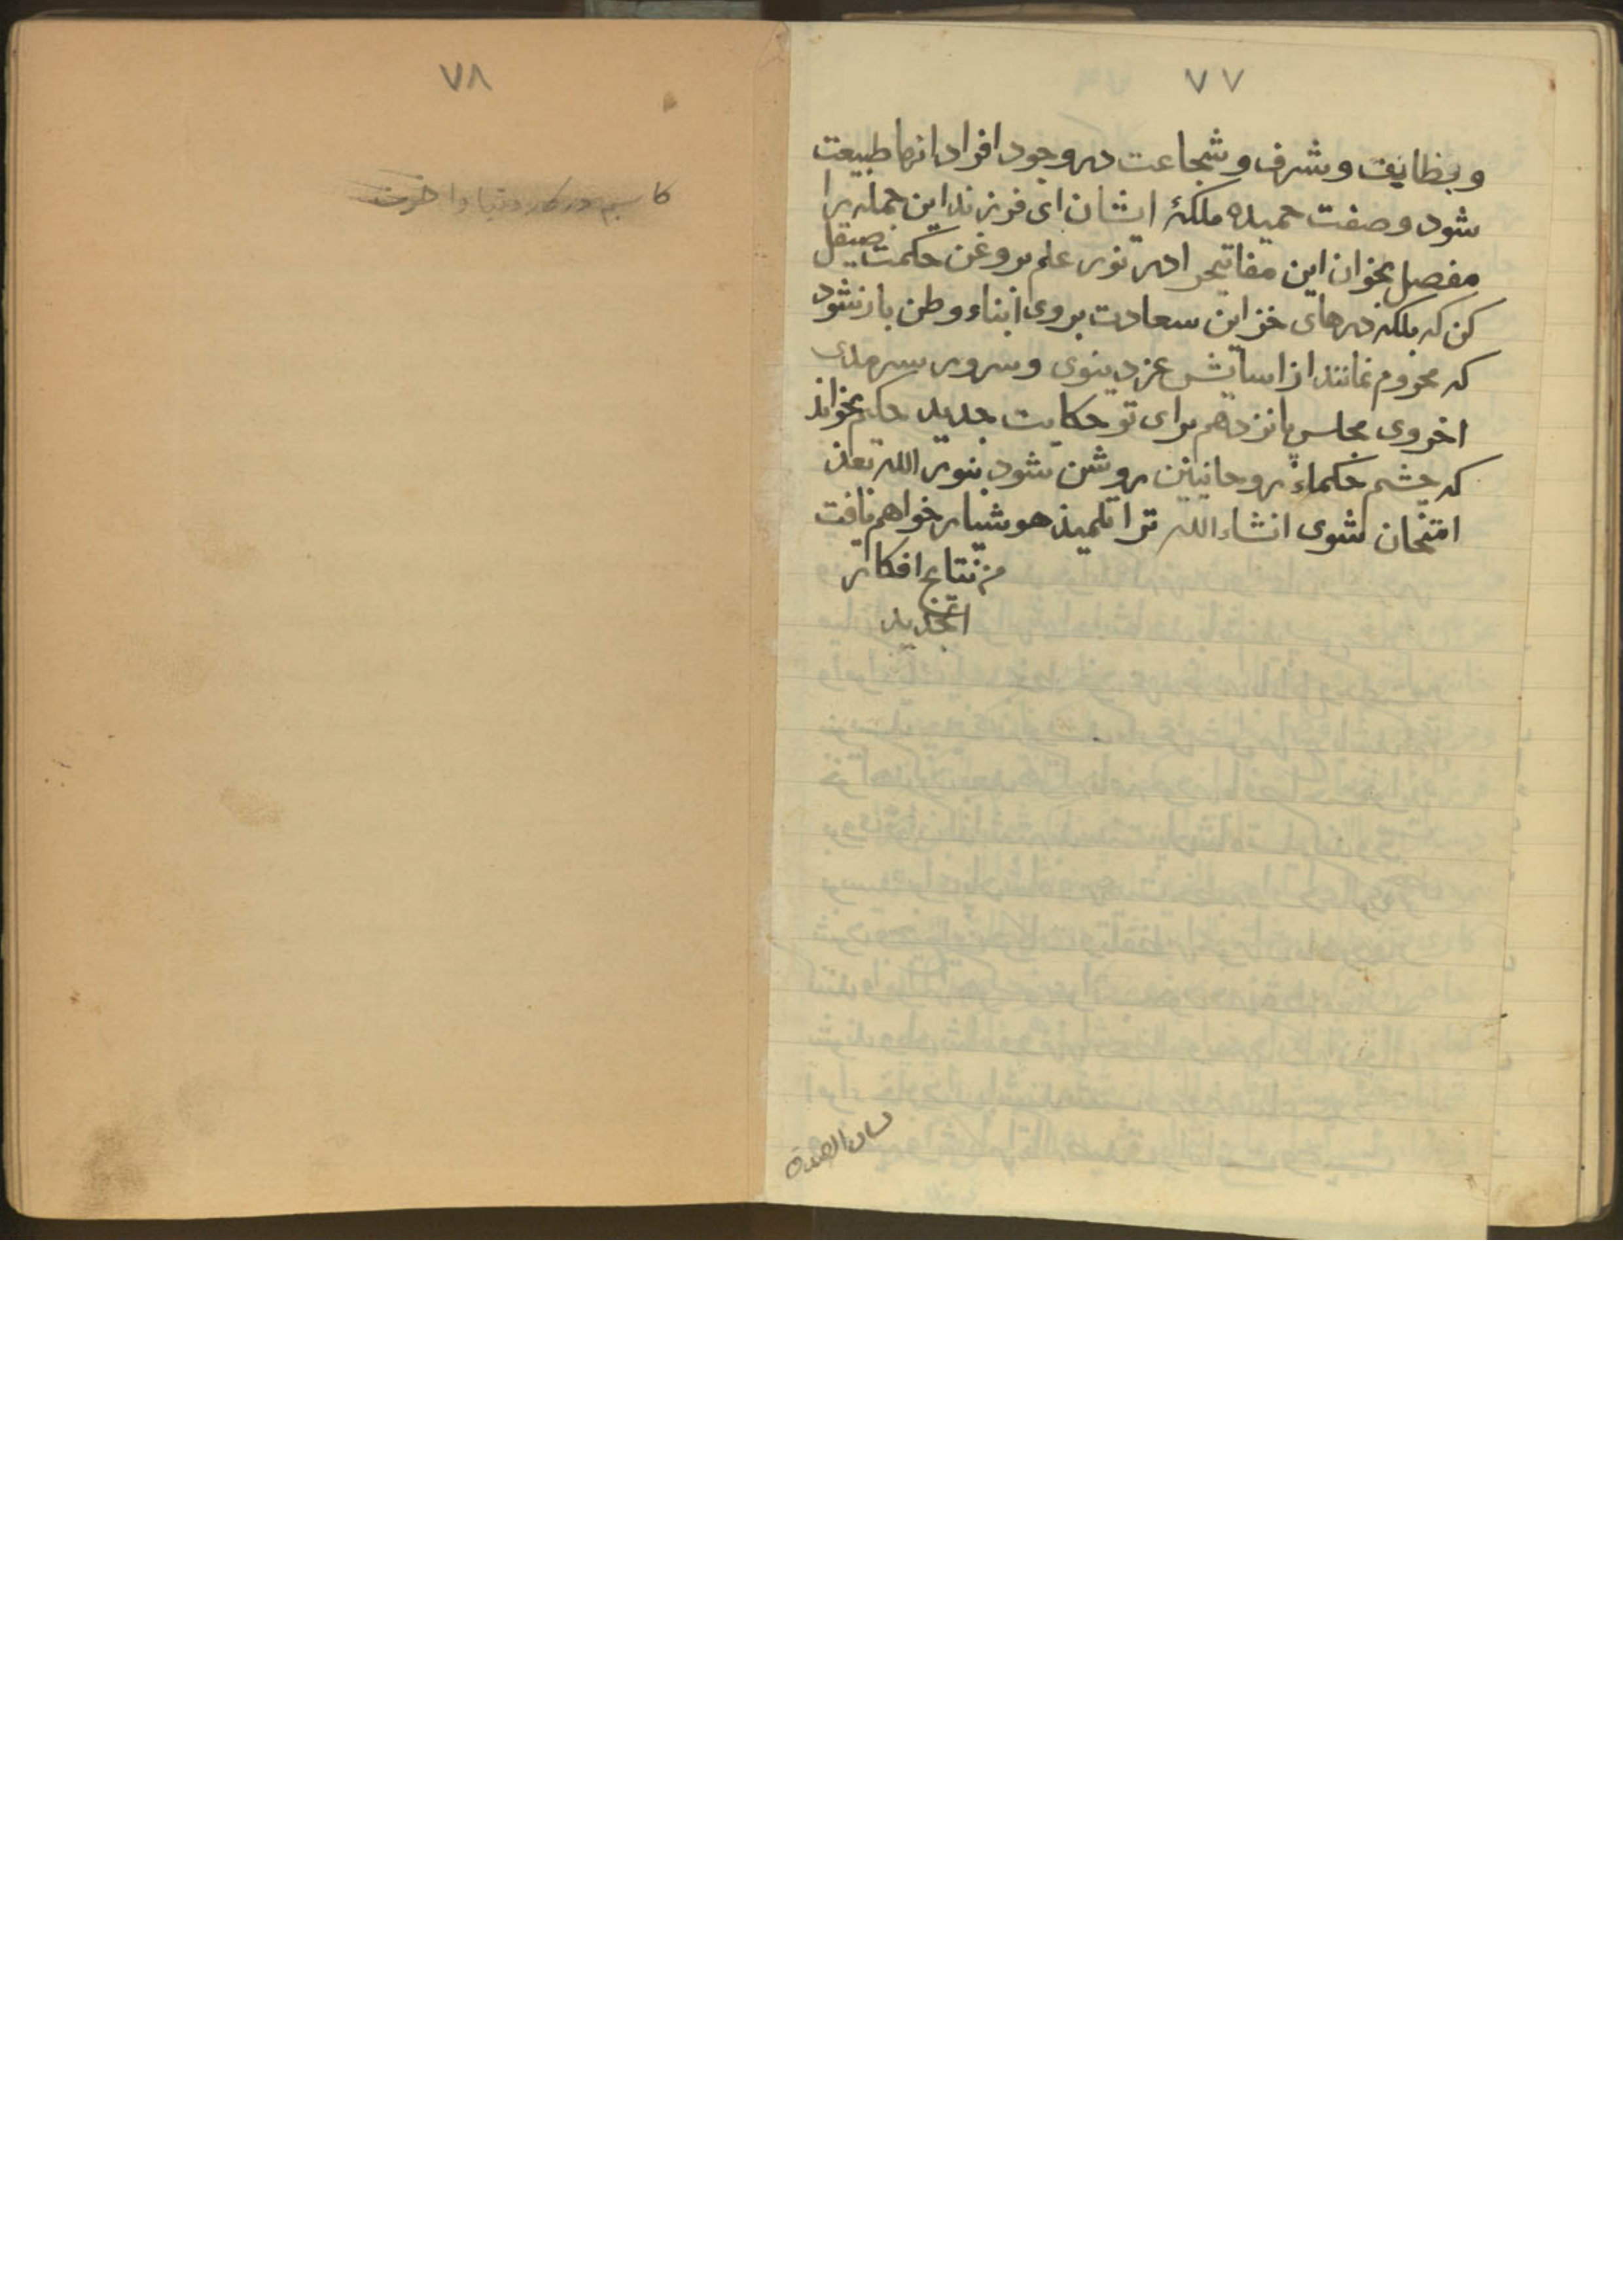 ٧٧
وبظايف وشرف وشجاعت در وجود افراد انها طبيعت
شود وصفت حميده ملكهٔ ايشان اى فرزند اين جمله را
مفصل بخوان اين مفاتيح را در نور علم بروغن حكمت صيقل
كن كه بلكه درهاى خزاين سعادت بروى ابناء وطن باز شود
كه محروم نمانند از اسايش عز دينوى وسرور سرمدى
اخروى مجلس پانزدهم براى تو حكايت جديد حكم بخواند
كه چشم حكماء روحانيين روشن شود بنور الله بعد
امتحان شوى انشاءالله ترا تلميذ هوشيار خواهم يافت
من نتايج افكار
الجديد
٧٨
دنيا واخرت